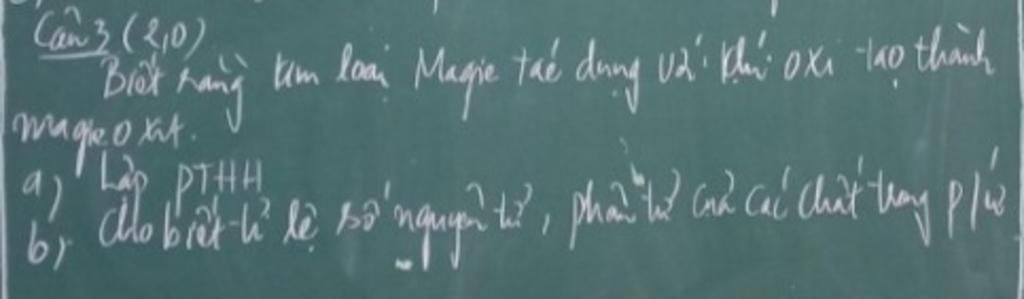 Câu 3 (2,0)
Biết rằng kim loại Magie tác dụng với khí oxi tạo thành
magie oxit.
a) Lập PTHH
b) Cho biết tỉ lệ số nguyên tử, phân tử của các chất trong p/ứ